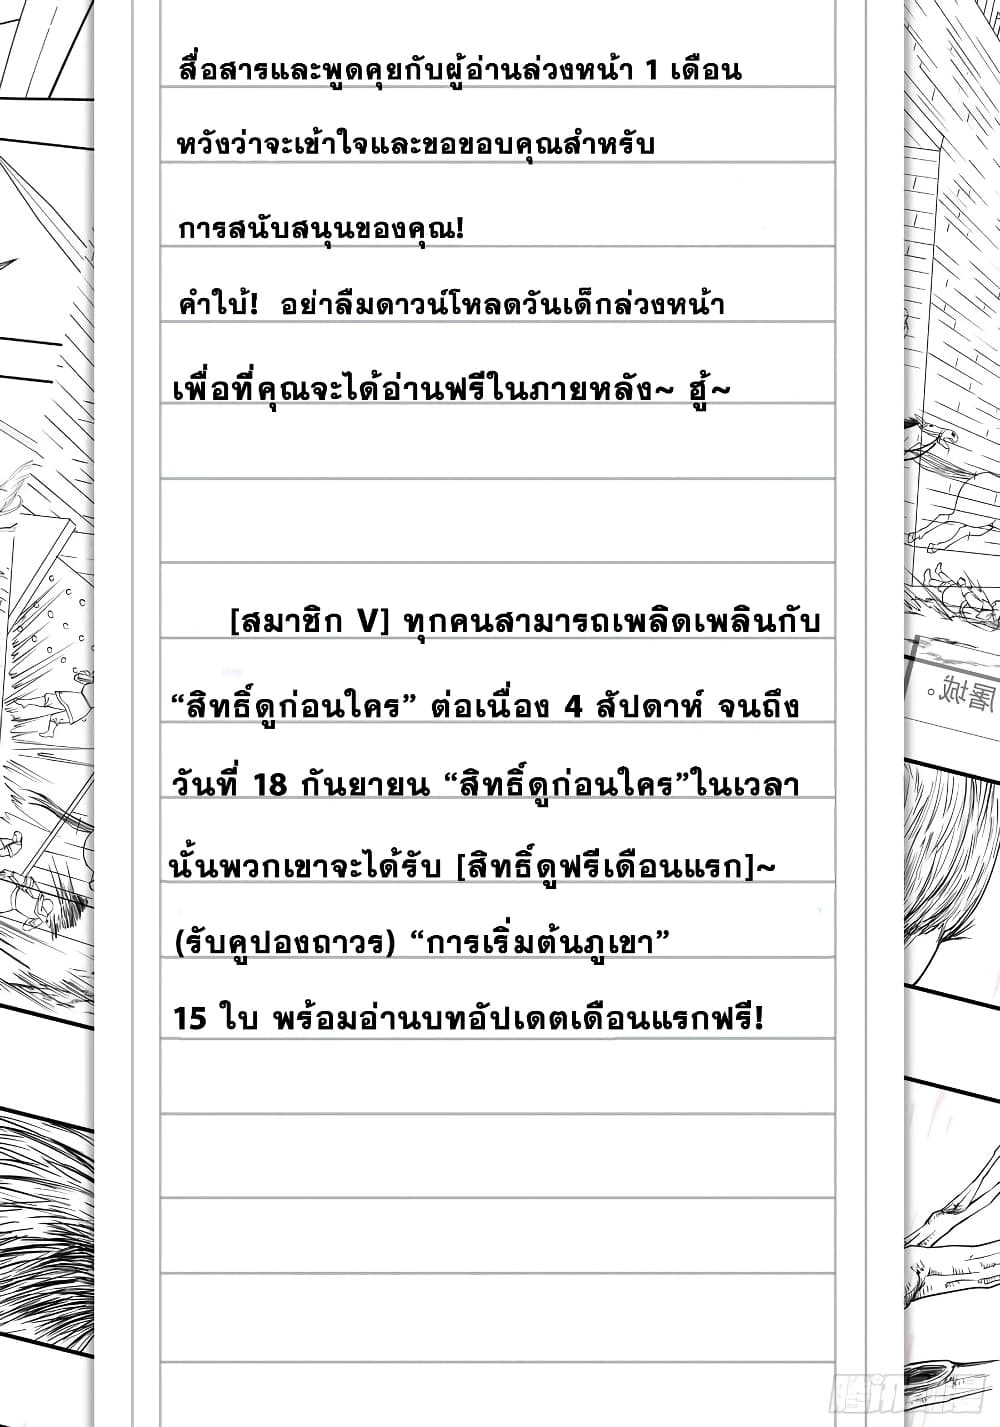 สื่อสารและพูดคุยกับผู้อ่านล่วงหน้า 1 เดือน
หวังว่าจะเข้าใจและขอขอบคุณสำหรับ
การสนับสนุนของคุณ!
คำใบ้! อย่าลืมดาวน์โหลดวันเด็กล่วงหน้า
เพื่อที่คุณจะได้อ่านฟรีในภายหลัง~ ฮู้~
[สมาชิก V] ทุกคนสามารถเพลิดเพลินกับ
“สิทธิ์ดูก่อนใคร” ต่อเนื่อง 4 สัปดาห์ จนถึง
วันที่ 18 กันยายน “สิทธิ์ดูก่อนใคร”ในเวลา
นั้นพวกเขาจะได้รับ [สิทธิ์ดูฟรีเดือนแรก]~
(รับคูปองถาวร) “การเริ่มต้นภูเขา”
15 ใบ พร้อมอ่านบทอัปเดตเดือนแรกฟรี!
屠城。